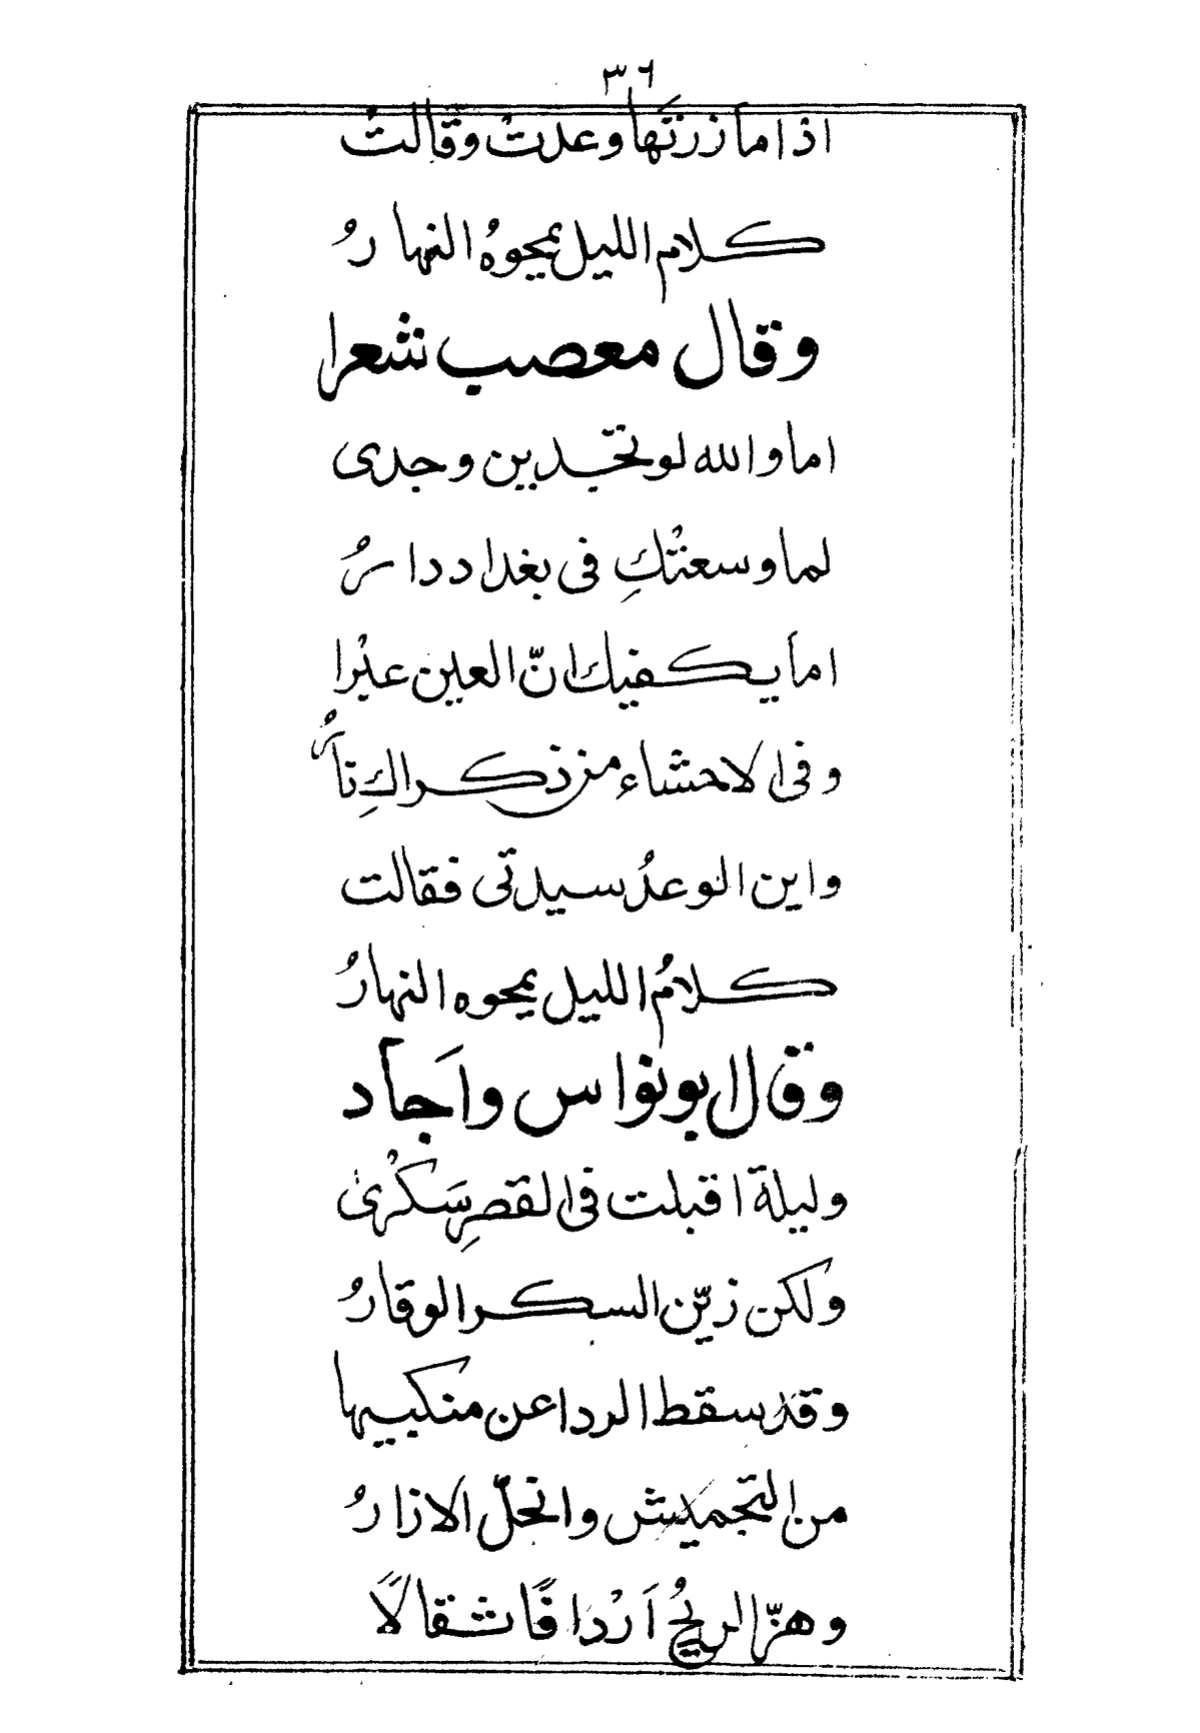 ٣٦
اذا ما زرتَها وعدتْ وقالتْ
كلام الليل يمحوهُ النهارُ
وقال معصب شعرا
اما والله لو تجدين وجدى
لما وسعتْكِ فى بغداد دارُ
اماَ يكفيك انّ العين عبْرا
وفى الاحشاء من ذكراكِ نارُ
واين الوعدُ سيدتى فقالت
كلامُ الليل يمحوه النهارُ
وقال ابو نواس واَجاد
وليلة اقبلت فى القصرِ سَكْرىٰ
ولكن زيّن السكر الوقارُ
وقد سقط الردا عن منكبيها
من التجميش وانحلّ الازارُ
وهزّ الريحُ اَرْدافًا ثقالًا